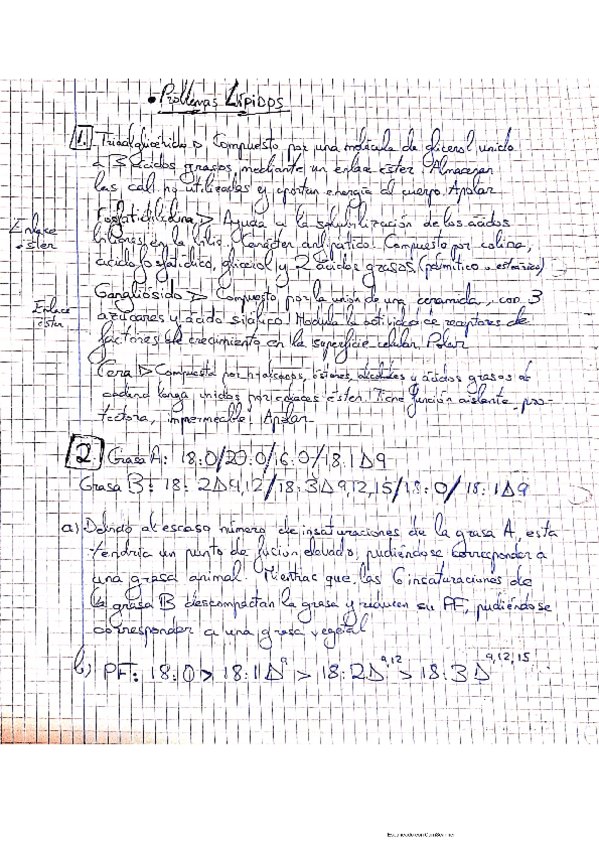 • Problemas Lípidos
1. Triacilglicérido → Compuesto por una molécula de glicerol unido
a 3 ácidos grasos mediante un enlace éster. Almacenar
las cal. no utilizadas y aportan energía al cuerpo. Apolar
Fosfatidilcolina → Ayuda a la solubilización de los ácidos
biliares en la bilis. Carácter anfipático. Compuesto por colina,
Enlace éster
ácido fosfatídico, glicerol y 2 ácidos grasos (palmítico o esteárico)
Gangliósido → Compuesto por la unión de una ceramida, con 3
Enlace éster
azúcares y ácido siálico. Modula la actividad de receptores de
factores de crecimiento en la superficie celular. Polar
Cera → Compuesta por hidrocarb., ésteres, alcoholes y ácidos grasos de
cadena larga unidos por enlaces éster. Tiene función aislante, pro-
tectora, impermeable. Apolar
2. Grasa A: 18:0/20:0/16:0/18:1Δ9
Grasa B: 18:2Δ9,12/18:3Δ9,12,15/18:0/18:1Δ9
a) Debido al escaso número de insaturaciones de la grasa A, esta
tendría un punto de fusión elevado, pudiéndose corresponder a
una grasa animal. Mientras que las 6 insaturaciones de
la grasa B descompactan la grasa y reducen su PF, pudiéndose
corresponder a una grasa vegetal
b) PF: 18:0 > 18:1Δ9 > 18:2Δ9,12 > 18:3Δ9,12,15
Escaneado con CamScanner